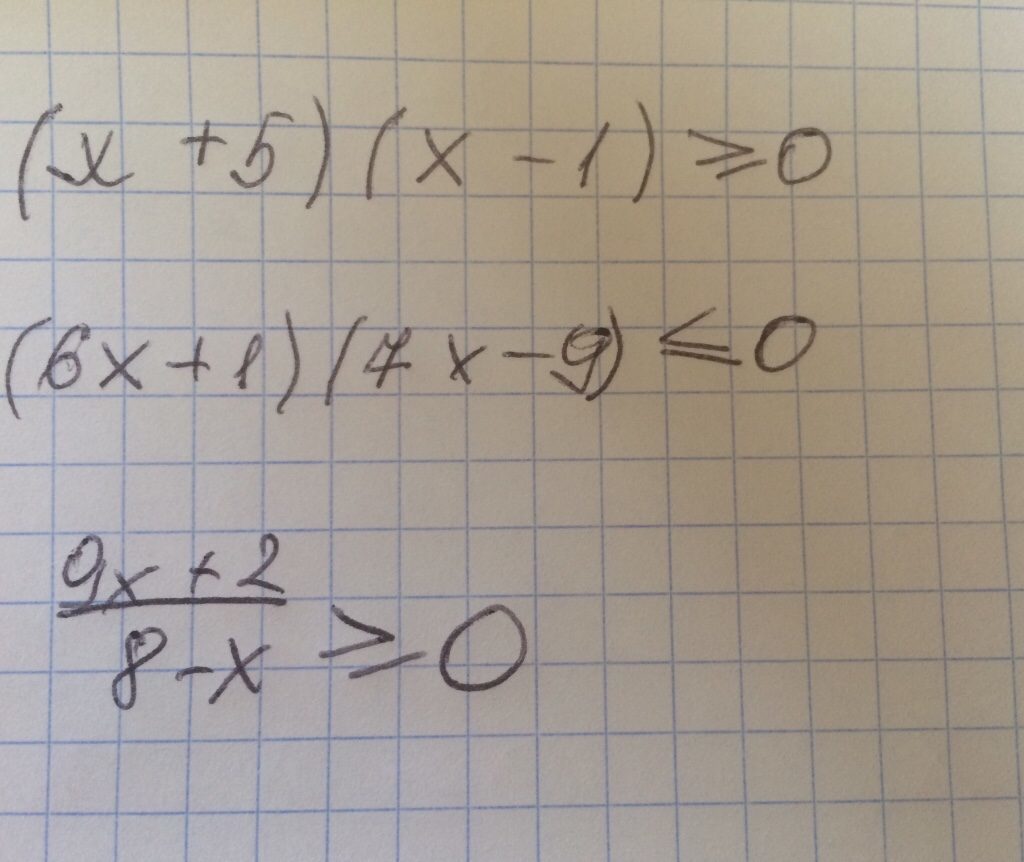 (x + 5) (x - 1) ≥ 0
(6x + 1) (7x - 9) ≤ 0
9x + 2
8 - x ≥ 0